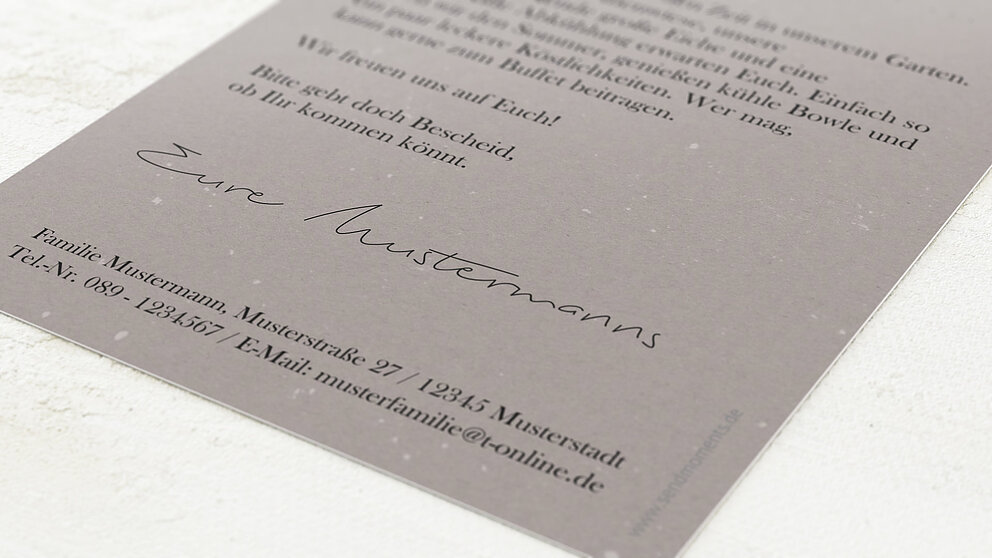 Zeit in unserem Garten.
große Eiche und eine
Abkühlung erwarten Euch. Einfach so
mit dem Sommer, genießen kühle Bowle und
ein paar leckere Köstlichkeiten. Wer mag,
kann gerne zum Buffet beitragen.
Wir freuen uns auf Euch!
Bitte gebt doch Bescheid,
ob Ihr kommen könnt.
Eure Mustermanns
Familie Mustermann, Musterstraße 27 / 12345 Musterstadt
Tel.-Nr. 089 - 1234567 / E-Mail: musterfamilie@t-online.de
www.sendmoments.de